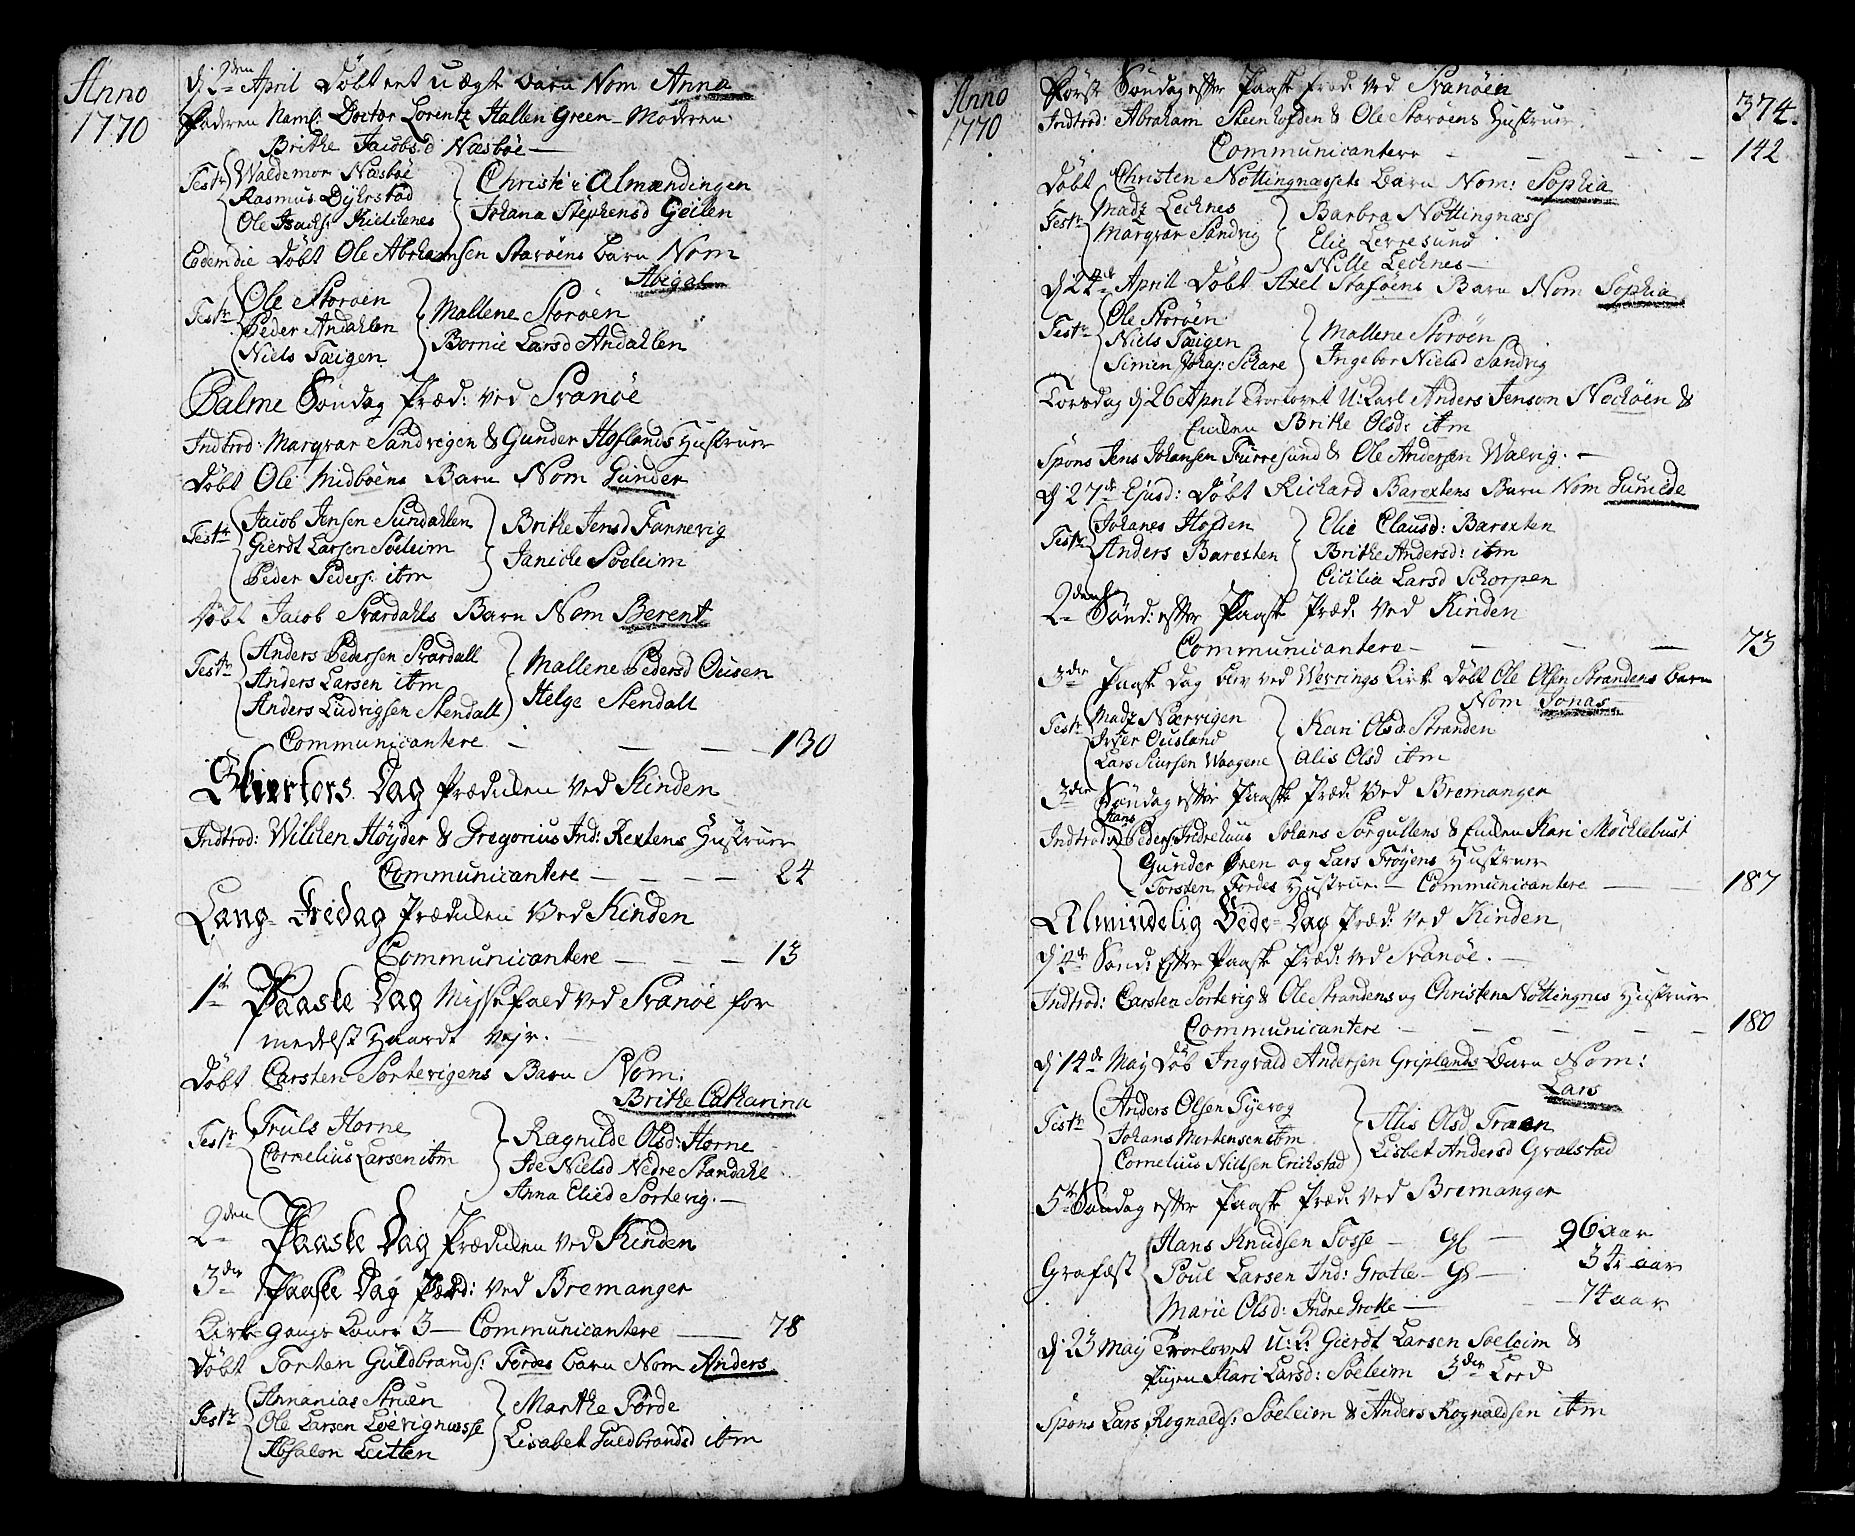 Anno
1770
dj 2den April Döbt eet uægte Barn Nom Anna
Fadren Naml: Doctor Lorentz Hallen Green - Modren
Brithe Jacobsd Næsbøe -
Test: Waldemor Næsbøe
Rasmus Dyhrstad
Ole Isachs: Kielchenes
Christi: Almændingen
Johana Stephensd Geilen
Eodem die Döbt Ole Abrhamsen Starøens barn Nom
Abigal
Test: Ole Storøen
Peder Andahlen
Niels Taigen
Mallene Storøen
Bornie Larsd Andahlen
Palme Søndag Præd: ved Svanøe
Indtrod: Margrær Sandvigen & Gunder Hoflands Hustruer
Döbt Ole Midbøens Barn Nom Gunder
Test: Jacob Jensen Sundahlen
Gierdt Larsen Søeleim
Peder Peders: itm
Brithe Jensd Fannevig
Janiche Søeleim
Döbt Jacob Svardahls Barn Nom Berent
Test: Anders Pedersen Svardall
Anders Larsen itm
Anders Ludvigsen Stendall
Mallene Pedersd Ousen
Helge Stendall
Communicantere - 130
Skiertors Dag Prædicken ved Kinden
Indtrod: Willchen Høyder & Gregorius Ind: Rextens Hustruer
Communicantere - 24
Lang-Fredag Prædicken Ved Kinden
Communicantere - 13
1te Paaske Dag Missefald ved Svanøe for
medelst Haardt Vejr.
Döbt Carsten Sortevigens Barn Nom:
Brithe Catharina
Test: Truls Horne
Cornelius Larsen itm
Ragnilde Olsd: Horne
Ide Nielsd Nedre Standahl
Anna Elied Sortevig. -
2den Paaske Dag Prædicken ved Kinden
3die Paaske Dag Præd: ved Bremanger
Kirke Gangs Koner 3 - Communicantere - 78
Döbt Torsten Guldbrands: Førdes barn Nom Anders
Test: Annanias Struen
Ole Larsen Løevignæsse
Absalon Leitten
Marthe Førde
Lisabet Guldbrandsd itm
Anno
1770
374.
Først Søndag efter Paaske Præd: ved Svanøen
Indtrod: Abraham Steenhofden & Ole Starøens Hustruer
Communicantere - 142
Döbt Christen Nøttingnæssets Barn Nom: Sophia
Test: Madz Lechnes
Margrær Sandvig
Barbra Nøttingnæss
Elie Leirresund
Nille Lechnes -
dj 24de April Döbt Axel Staføens Barn Nom Sophia
Test: Ole Storøen
Niels Taigen
Simen Johas: Schare
Mallene Storøen
Ingebor Nielsd Sandvig
Torsdag dj 26 April Trorlovet U: Karl Anders Jenson Nochøen &
Encken Brithe Olsd: itm
Spons Jens Johansen Furresund & Ole Andersen Walvig. -
dj 27de Ejusd: Döbt Richard Barextens Barn Nom Gunilde
Test: Johanes Hofden
Anders Barexten
Elie Clausd: Barexten
Brithe Andersd: itm
Cicilia Larsd Schorpen
2den Sönd: efter Paaske Præd: ved Kinden
Communicantere - 73
3die Paaske Dag blev ved Werrings Kirk Döbt Ole Olsen Strandens barn
Nom Jonas
Test: Madz Nærvigen
Iver Ousland
Lars Siursen Waagene
Kari Olsd: Stranden
Alis Olsd itm
3die Søndag efter Paaske Præd: Ved Bremanger
Indtrod: Hans Peders: Indrehuus Johans Sørgullens & Encken Kari Möchlebust
Gunder Øren og Lars Frøyens Hustruer
Torsten Førdes Hustrue. - Communicantere - 187
Almindelig Bede-Dag Præd: ved Kinden
dj 4de Sönd: Efter Paaske Præd: ved Svanøe. -
Indtrod: Carsten Sortevig & Ole Strandens og Christen Nøttingnes Hustruer
Communicantere - 180
dj 14de Maj Döb Ingvald Andersen Griplands Barn Nom:
Lars
Test: Anders Olsen Tyevog
Johans Mortensen itm
Cornelius Nillsen Erichstad
Alis Olsd Traen
Lisbet Andersd Gralstad
5te Søndag efter Paaske Præd: Ved Bremanger
Grafæst Hans Knudsen Tosse - Gl - 96 aar
Poul Larsen Ind: Grotle - Gl - 34 aar
Marie Olsd: Indre Grotle - 74 aar
dj 23 Maj Trorlovet U: K: Gierdt Larsen Søeleim &
Pigen Kari Larsd: Søeleim 3die Leed
Spons Lars Rognalds: Søeleim & Anders Rognaldsen itm